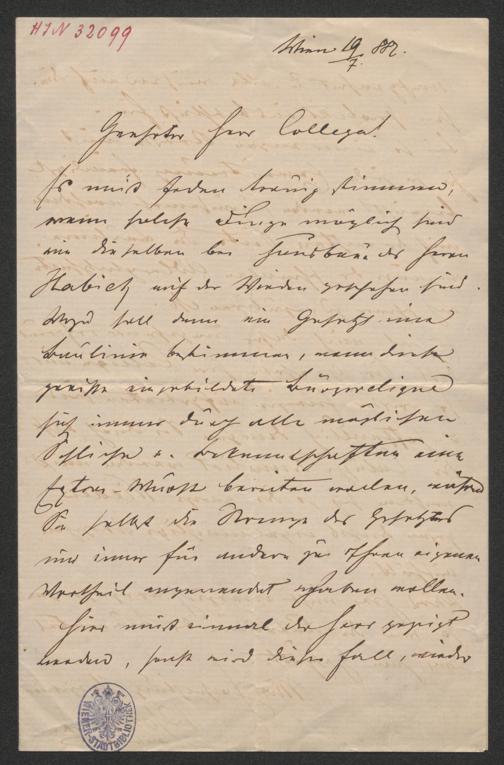 HIN 32099
Wien 19/7. 882.
Geehrter Herr Collega!
Es muß jeden traurig stimmen,
wenn solche Dinge möglich sind
wie dieselben bei Hausbau des Herrn
Habich auf der Wieden geschehen sind.
Wozu soll denn ein Gesetz eine
Baulinie bestimmen, wenn diese
gewisse eingebildete Bürgerclique
sich immer durch alle möglichen
Schliche u. Bekanntschaften eine
Extra-Wurst bereiten wollen, während
Sie selbst die Strenge des Gesetzes
nur immer für andere zu Ihren eigenen
Vortheil angewendet haben wollen.
Hier muß einmal der Herr gezeigt
werden, sonst wird dieser Fall, wieder
WIENER STADTBIBLIOTHEK